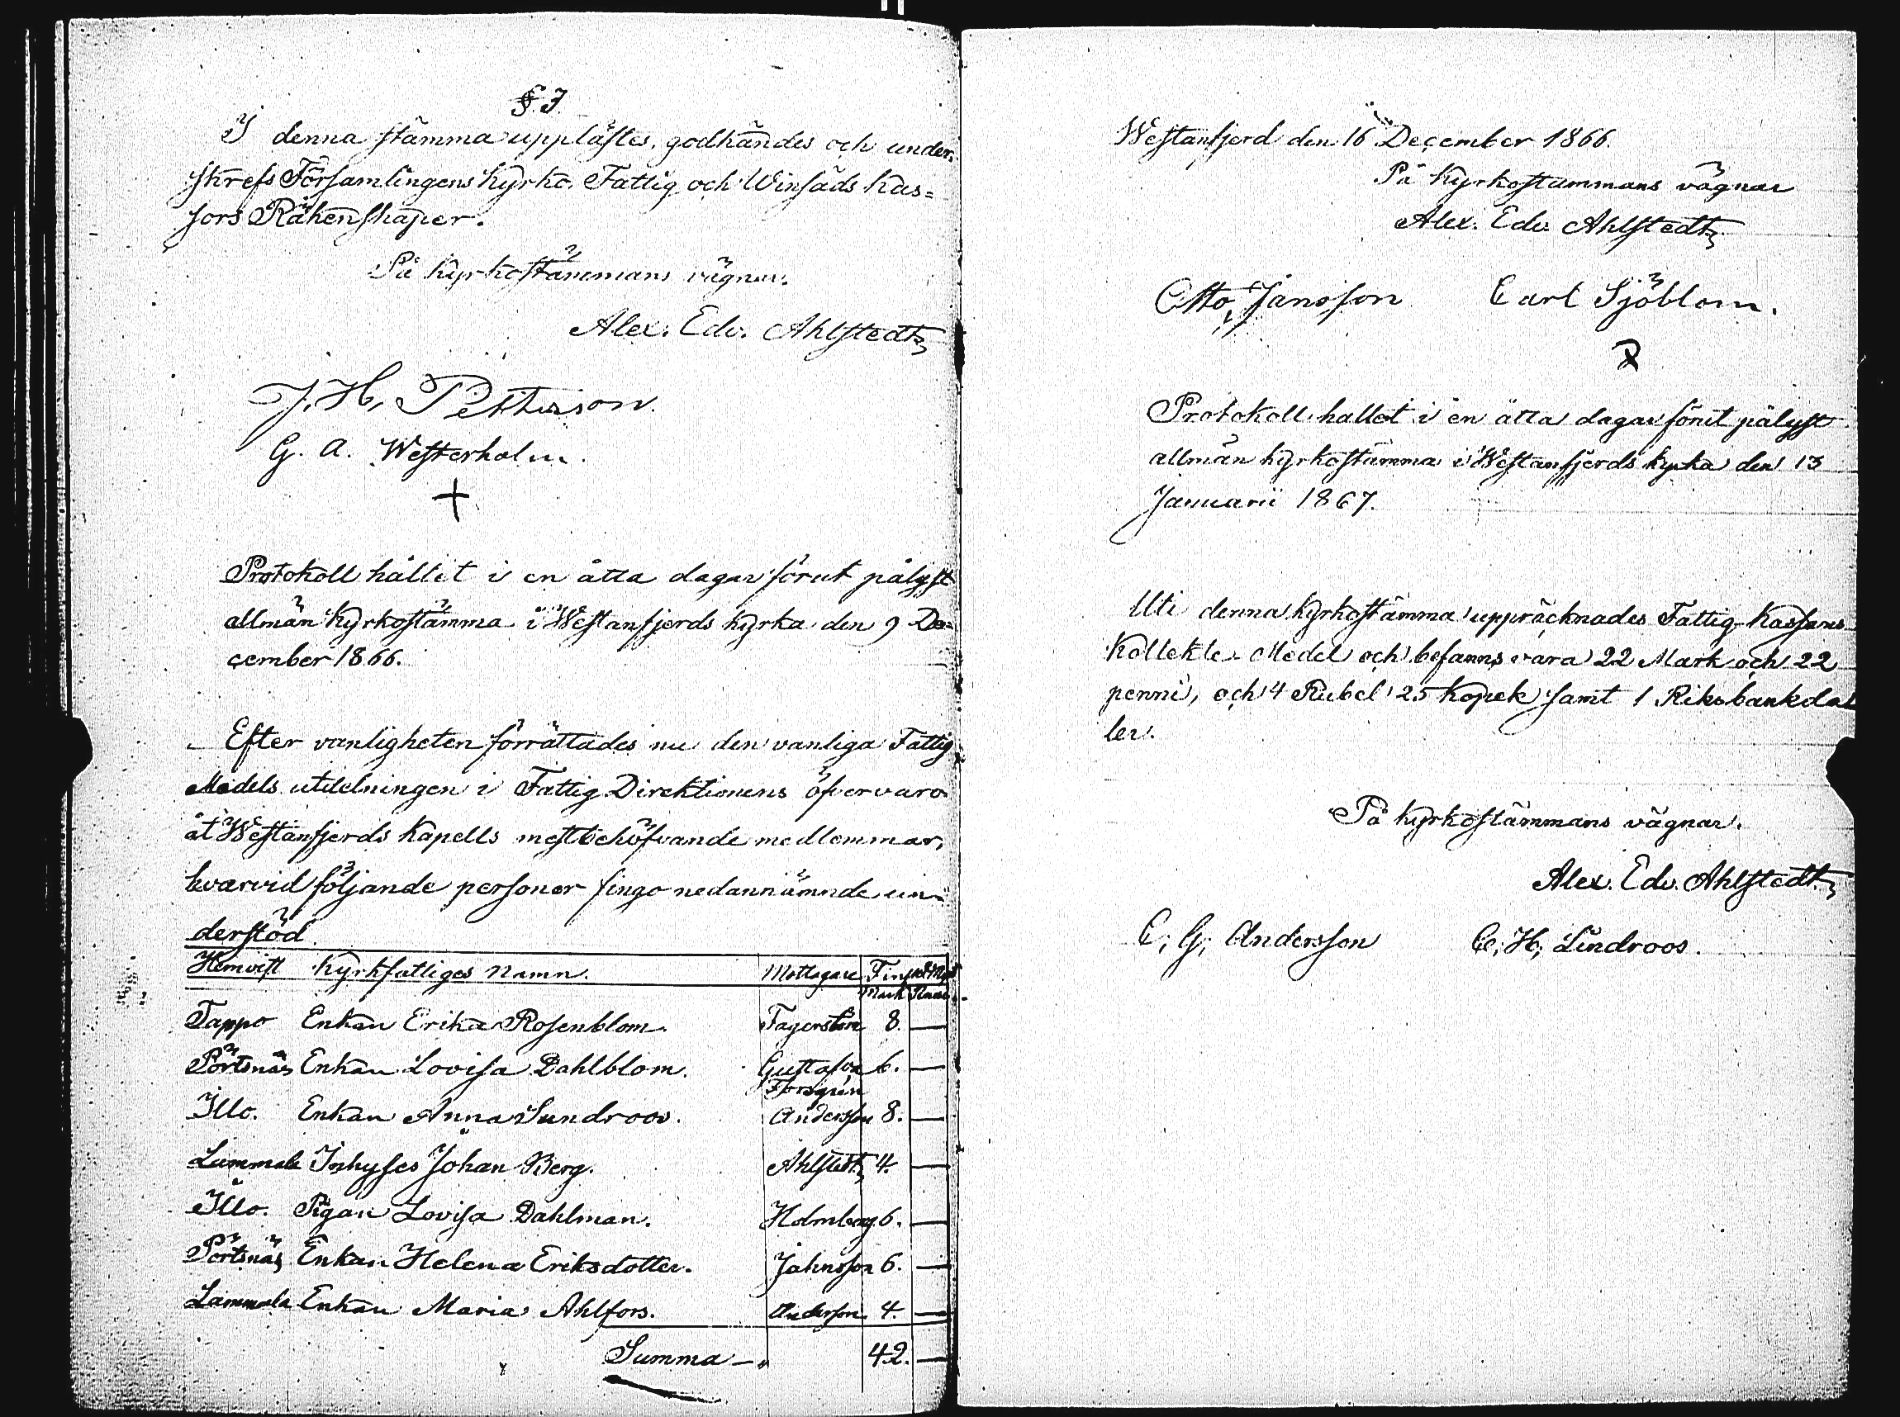 § 3
I denna stämma upplästes, godkändes och under-
skrefs Församlingens Kyrko, Fattig och Winsäds Kas-
sors Räkenskaper.
På Kyrkostämmans vägnar.
Alex. Edv. Ahlstedt
J. H. Pettersson.
G. A. Westerholm.
Protokoll hållet i en åtta dagar förut pålyst
allmän Kyrkostämma i Westanfjerds kyrka den 9 De-
cember 1866.
Efter vanligheten förrättades nu den vanliga Fattig
Medels utdelningen i Fattig Direktionens öfvervaro
åt Westanfjerds Kapells mest behöfvande medlemmar,
hvarvid följande personer fingo nedannämnde un-
derstöd
Hemvist Kyrkfattiges namn. Mottagare Fingo
Mark
Tappo Enkan Erika Rosenblom. 8. —
Pörtsnäs Enkan Lovisa Dahlblom. Gustafson 6. —
Forsgrén
Illo. Enkan Anna Sundroos. Andersson 8. —
Lammala Inhyses Johan Berg. Ahlstedt 4. —
Illo. Pigan Lovisa Dahlman. Holmberg 6. —
Pörtsnäs Enkan Helena Eriksdotter. Jahnsson 6. —
Lammala Enkan Maria Ahlfors. Andersson 4. —
Summa — 42. —
Westanfjerd den 16 December 1866.
På Kyrkostämmans vägnar
Alex. Edv. Ahlstedt
Otto Jansson Carl Sjöblom.
Protokoll hållet i en åtta dagar förut pålyst
allmän kyrkostämma i Westanfjerds kyrka den 13
Januarii 1867.
Uti denna kyrkostämma uppräcknades Fattig-Kassans
Kollekte-Medel och befanns vara 22 Mark och 22
penni, och 4 Rubel 25 Kopek samt 1 Riksbankdal
ler.
På kyrkostämmans vägnar.
Alex. Edv. Ahlstedt
C. G. Andersson C. H. Lindroos.